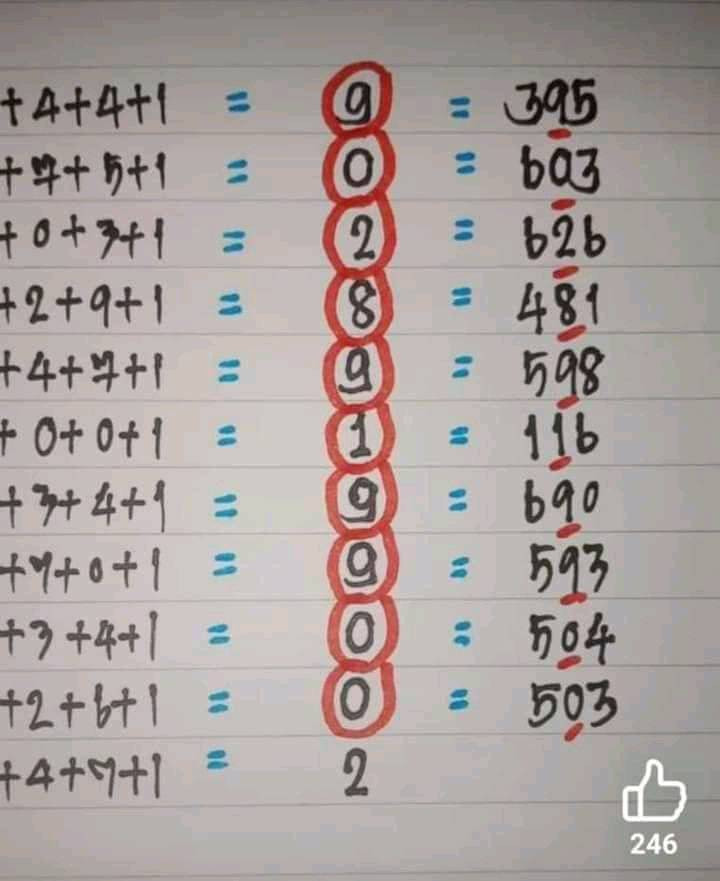 +4+4+1 = 9 = 395
+7+5+1 = 0 = 603
+0+3+1 = 2 = 626
+2+9+1 = 8 = 481
+4+7+1 = 9 = 598
+0+0+1 = 1 = 116
+3+4+1 = 9 = 690
+7+0+1 = 9 = 593
+3+4+1 = 0 = 504
+2+6+1 = 0 = 503
+4+7+1 = 2
246